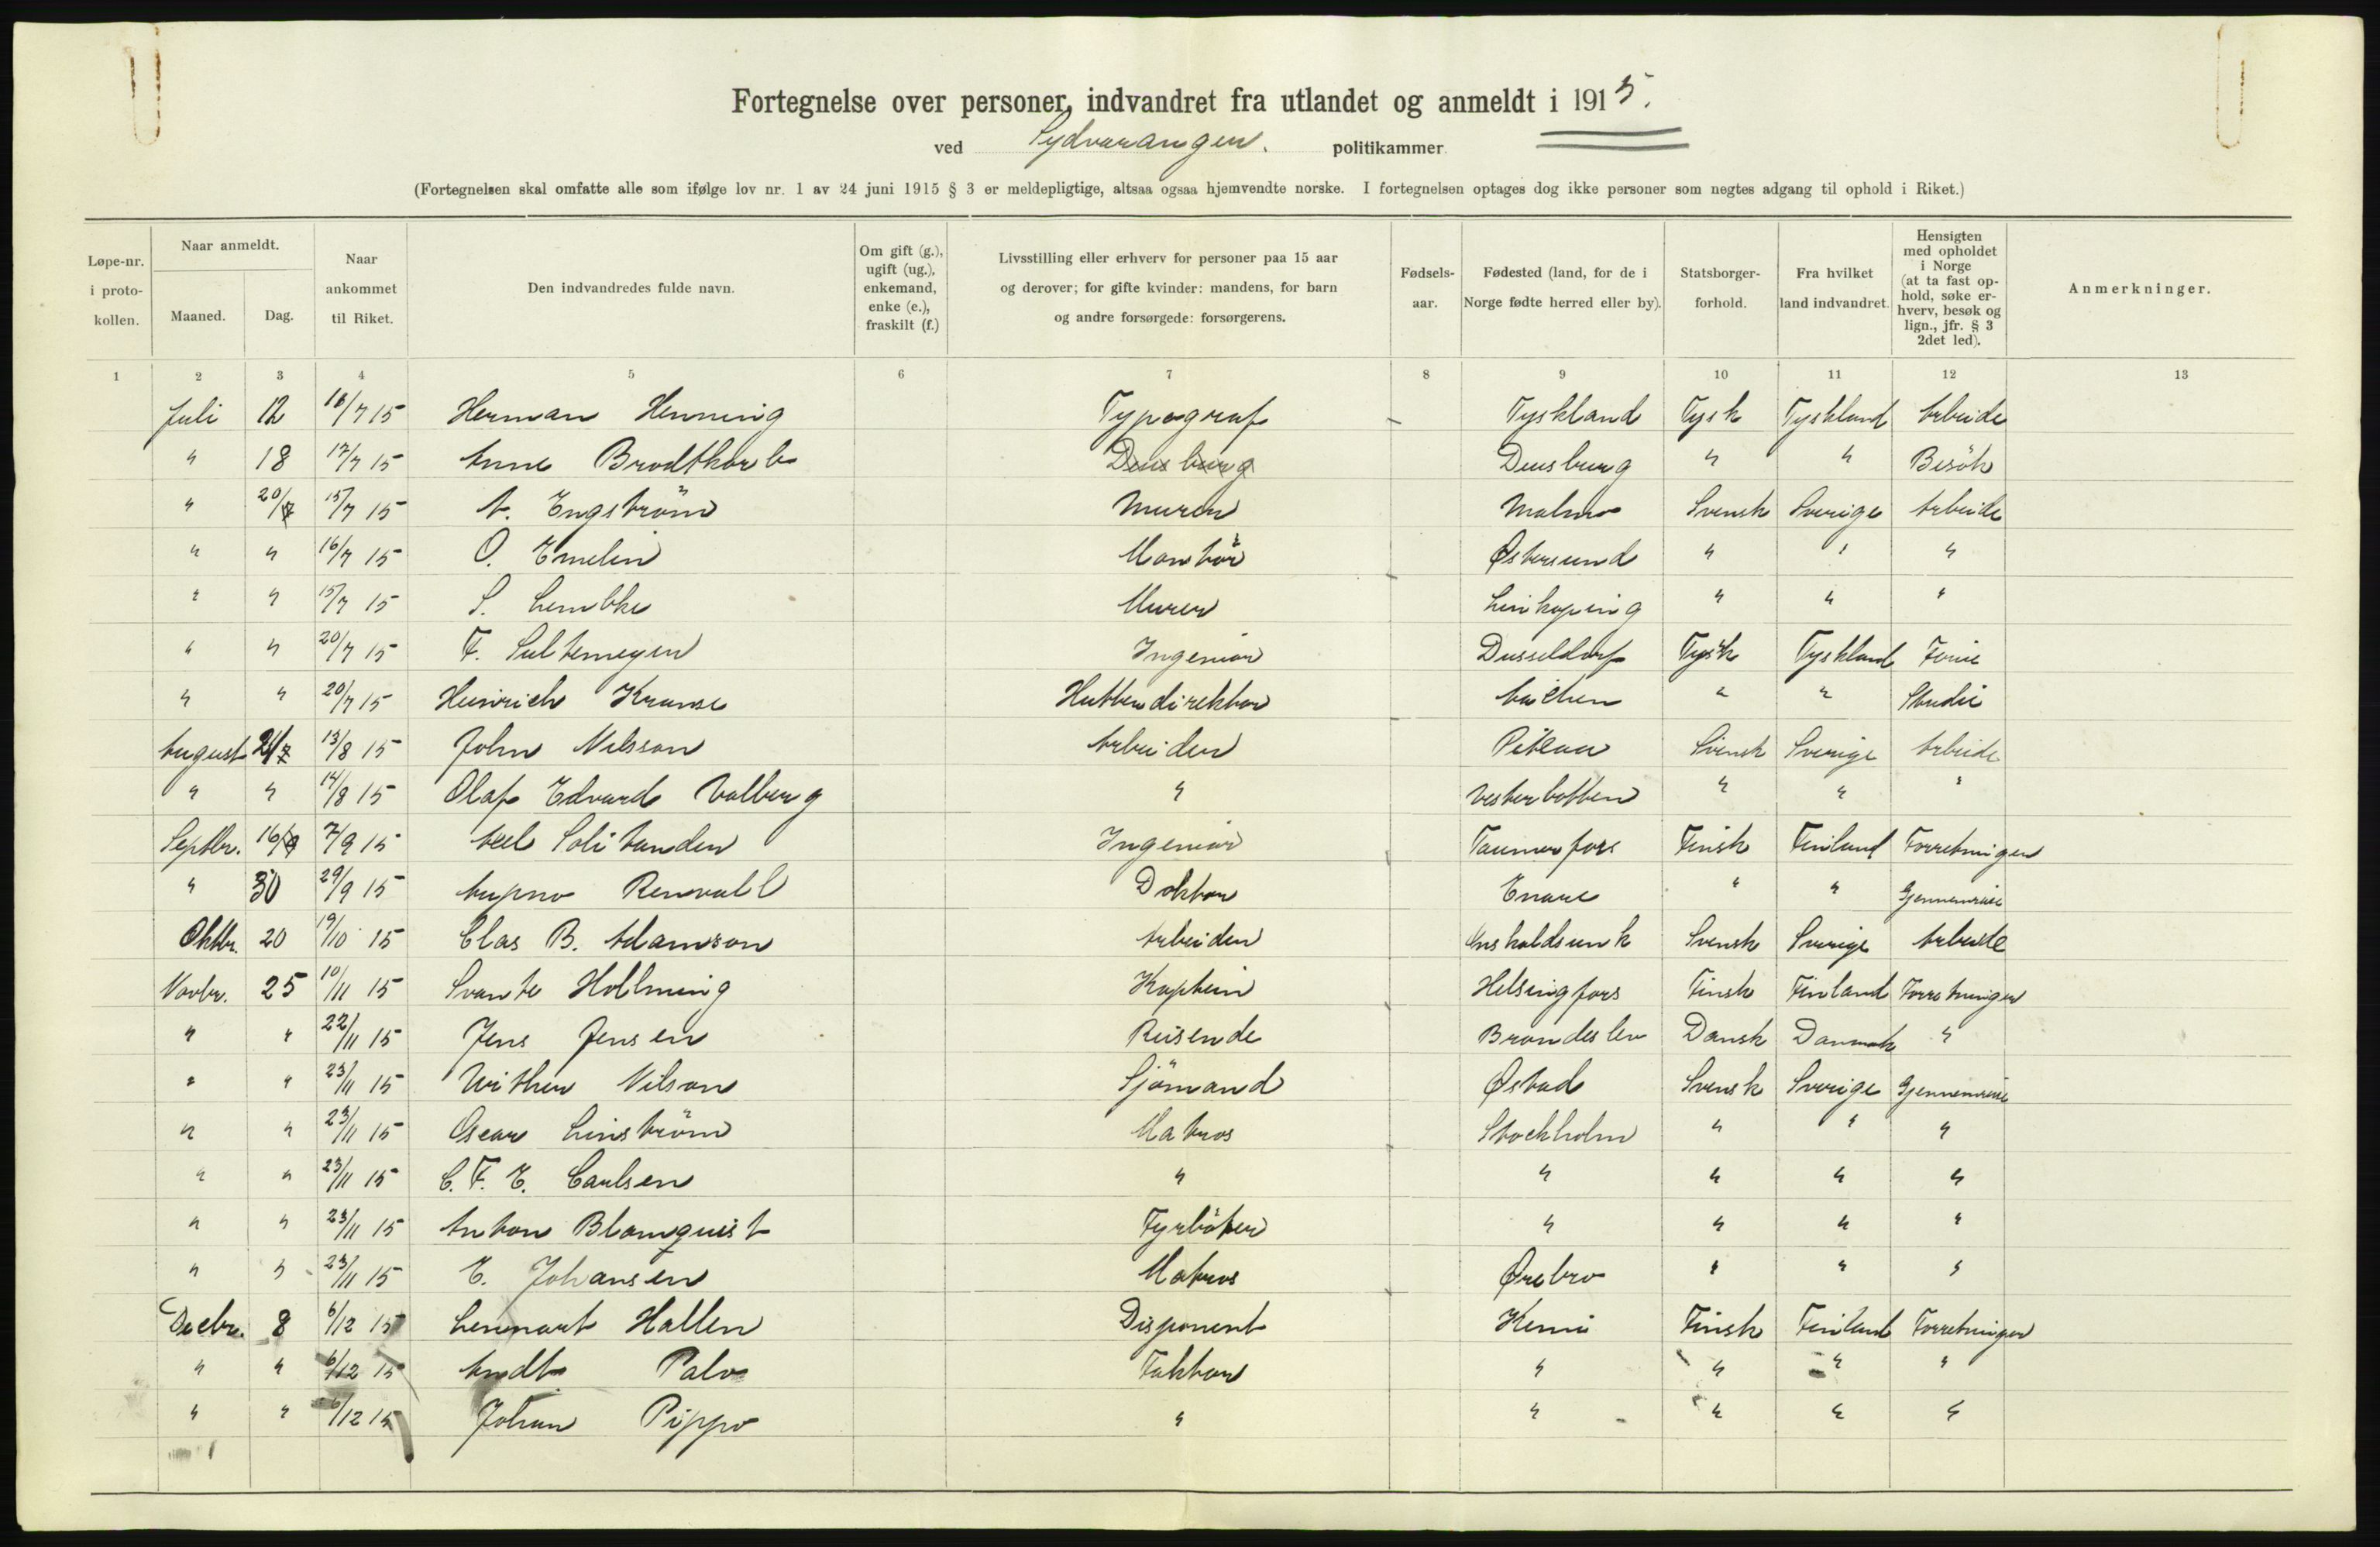 Fortegnelse over personer, indvandret fra utlandet og anmeldt i 1915.
ved Sydvarangen. politikammer.
(Fortegnelsen skal omfatte alle som ifølge lov nr. 1 av 24 juni 1915 § 3 er meldepligtige, altsaa ogsaa hjemvendte norske. I fortegnelsen optages dog ikke personer som negtes adgang til ophold i Riket.)
Løpe-nr. i proto-kollen. Naar anmeldt. Maaned. Dag. Naar ankommet til Riket. Den indvandredes fulde navn. Om gift (g.), ugift (ug.), enkemand, enke (e.), fraskilt (f.) Livsstilling eller erhverv for personer paa 15 aar og derover; for gifte kvinder: mandens, for barn og andre forsørgede: forsørgerens. Fødsels-aar. Fødested (land, for de i Norge fødte herred eller by). Statsborger-forhold. Fra hvilket land indvandret. Hensigten med opholdet i Norge (at ta fast op-hold, søke er-hverv, besøk og lign., jfr. § 3 2det led). Anmerkninger.
1 2 3 4 5 6 7 8 9 10 11 12 13
Juli 12 16/7 15 Herman Henning Typograf Tyskland Tysk Tyskland Arbeide
" 18 17/7 15 Anne Brodtkorb Deusburg Deusburg " " Besök
" 20/7 15/7 15 A. Engström Murer Malmo Svensk Sverige Arbeide
" " 16/7 15 O. Emelin Montör Østersund " " "
" " 15/7 15 S. Lembke Murer Linkoping " " "
" " 20/7 15 F. Sultemeyer Ingeniör Dusseldorf Tysk Tyskland Ferie
" " 20/7 15 Heinrich Krause Huttendirektor Aachen " " Studie
August 21 13/8 15 John Nilsson Arbeider Piteaa Svensk Sverige Arbeide
" " 14/8 15 Olaf Edvard Valberg " Vesterbotten " " "
Septbr. 16/9 7/9 15 Axel Solitander Ingeniör Tammerfors Finsk Finland Forretninger
" 30 29/9 15 Renvall Doktor Enare " " Gjennemreise
Oktbr. 20 19/10 15 Clas B. Adamson Arbeider Svensk Sverige Arbeide
Novbr. 25 10/11 15 Svante Hollming Kaptein Helsingfors Finsk Finland Forretninger
" " 22/11 15 Jens Jensen Reisende Bronderslev Dansk Danmark "
" " 23/11 15 Nilson Sjömand Østad Svensk Sverige Gjennemreise
" " 23/11 15 Oscar Linström Matros Stockholm " " "
" " 23/11 15 C. F. E. Carlsen " " " " "
" " 23/11 15 Anton Blomquist Fyrböter " " " "
" " 23/11 15 E. Johansen Matros Ørebro " " "
Decbr. 8 6/12 15 Lennart Hallen Disponent Kemi Finsk Finland Forretninger
" " 6/12 15 Palo Faktor " " " "
" " 6/12 15 Johan Pippo " " " " "